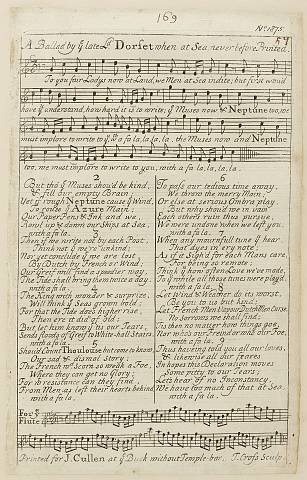 169
No. 1875.
A Ballad by ye late Ld. Dorset when at Sea never before Printed.
To you fair Ladys now at Land, we Men at Sea indite; but first would
have you understand, how hard it is to write; ye Muses now & Neptune too, we
must implore to write to you, with a fa la, la, la, la. the Muses now and Neptune
too, we must implore to write to you, with a fa, la, la, la, la.
2
But tho' ye Muses should be kind,
& fill our empty brain
Yet if rough Neptune cause ye Wind,
To rouse ye Azure Main;
Our Paper Pens & Ink and we
Rowl up & down our Ships at Sea,
with a fa la.
3
Then if we write not by each Post,
Think not yt we're unkind;
Nor yet conclude yt we are lost,
By Dutch by French or Wind,
Our Greif will find a speedier way,
The Tide shall bring them twice a day.
with a fa la.
4
The King with wonder & surprize,
Will think ye Seas grown bold,
For that the Tide does higher rise
Then ere it did of old:
But let him know it is our Tears,
Sends floods of Greif to White-hall Stairs.
with a fa la.
5
Should Count Thoulouse but come to know,
Our sad & dismal Story;
The French wd. Scorn so weak a Foe,
Where they can get no Glory;
For wt. resistance can they find,
From Men as left their hearts behind
with a fa la.
6
To pass our tedious time away,
We throw the merry Main,
Or else at serious Ombra play
But why should we in vain
Each others ruin thus pursue,
We were undone when we left you.
with a fa la.
7
When any mournfull tune yt hear
That dyes in ev'ry note;
As if it Sigh'd for each Mans care,
For being so remote,
Think yn how often Love we've made,
To you while all those tunes were play'd.
with a fa la.
8
Let Wind & Weather do its worst,
Be you to us but kind,
Let French Men Vapour Dutch Men Curse,
No Sorrows we shall find;
Tis then no matter how things goe,
Nor who's our Freind or who's our Foe.
with a fa la.
9
Thus having told you all our loves,
& likewise all our feares
In hopes this Declaration moves
Some petty to our Tears;
Let's hear of no Inconstancy,
We have too much of that at Sea.
with a fa la.
For ye
Flute
Printed for J. Cullen at ye Buck without Temple-bar. T. Cross Sculp.